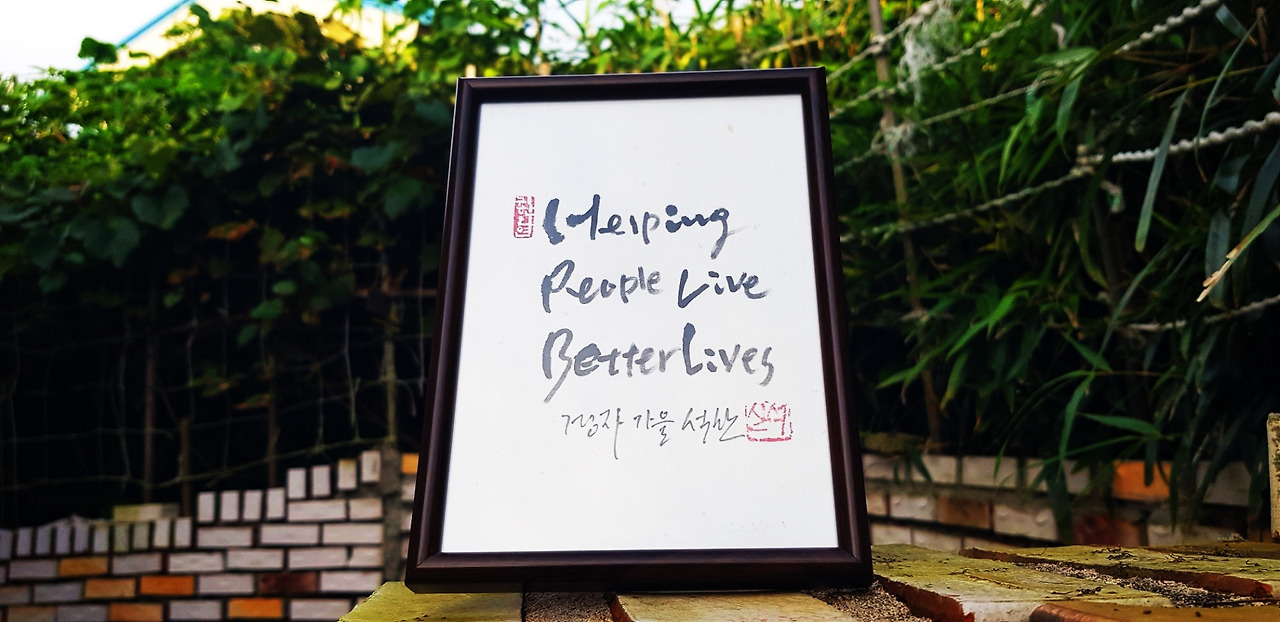 Helping
People Live
Better Lives
경자 가을 석산